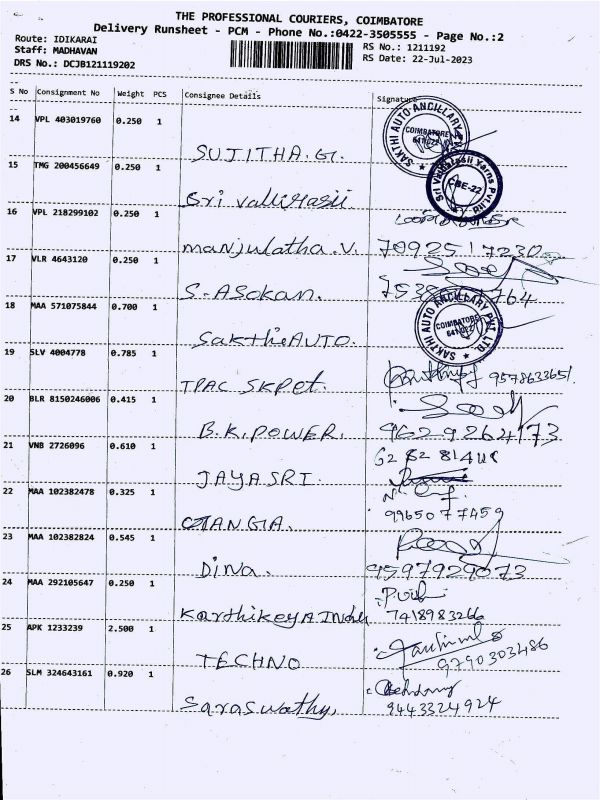 THE PROFESSIONAL COURIERS, COIMBATORE
Delivery Runsheet - PCM - Phone No.:0422-3505555 - Page No.:2
Route: IDIKARAI
Staff: MADHAVAN
RS No.: 1211192
DRS No.: DCJB121119202
RS Date: 22-Jul-2023
S No Consignment No Weight PCS Consignee Details Signature
14 VPL 403019760 0.250 1
SUJITHA.G.
SAKTHI AUTO ANCILLARY
COIMBATORE
15 TMG 200456649 0.250 1
Sri Vallirasii
Sri Vallirasii Yarns Pvt Ltd
CBE-22
16 VPL 218299102 0.250 1
manjulatha.V. 7092517230
17 VLR 4643120 0.250 1
S. ASOKAN.
18 MAA 571075844 0.700 1
Sakthi AUTO.
SAKTHI AUTO ANCILLARY PVT. LTD.
COIMBATORE
19 SLV 4004778 0.785 1
TPAC SKPet. 9578633651
20 BLR 8150246006 0.415 1
B.K. POWER. 9629264173
21 VNB 2726096 0.610 1
JAYASRI.
22 MAA 102382478 0.325 1
9965077459
23 MAA 102382824 0.545 1
Dina. 9597929073
24 MAA 292105647 0.250 1
Karthikeya 7418983266
25 APK 1233239 2.500 1
TECHNO 9790303486
26 SLM 324643161 0.920 1
Saraswathy, 9443324924